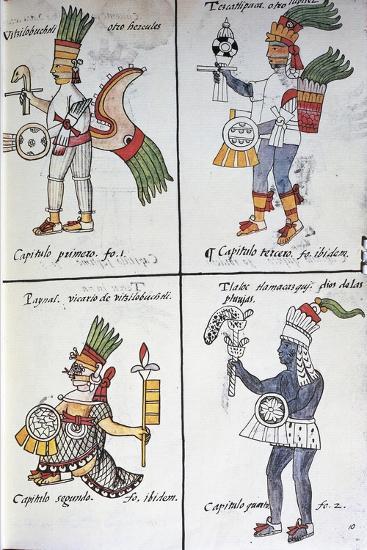 Vitzilobuchtli otro hercules
Capitulo primero. fo. 1.
Tezcatlipuca. otro Iupiter
¶ Capitulo tercero. fo. ibidem.
Paynal. vicario de vitzilobuchtli.
Capitulo segundo. fo. ibidem.
Tlaloc tlamacazqui. dios de las
pluujas.
Capitulo quarto fo. 2.
10